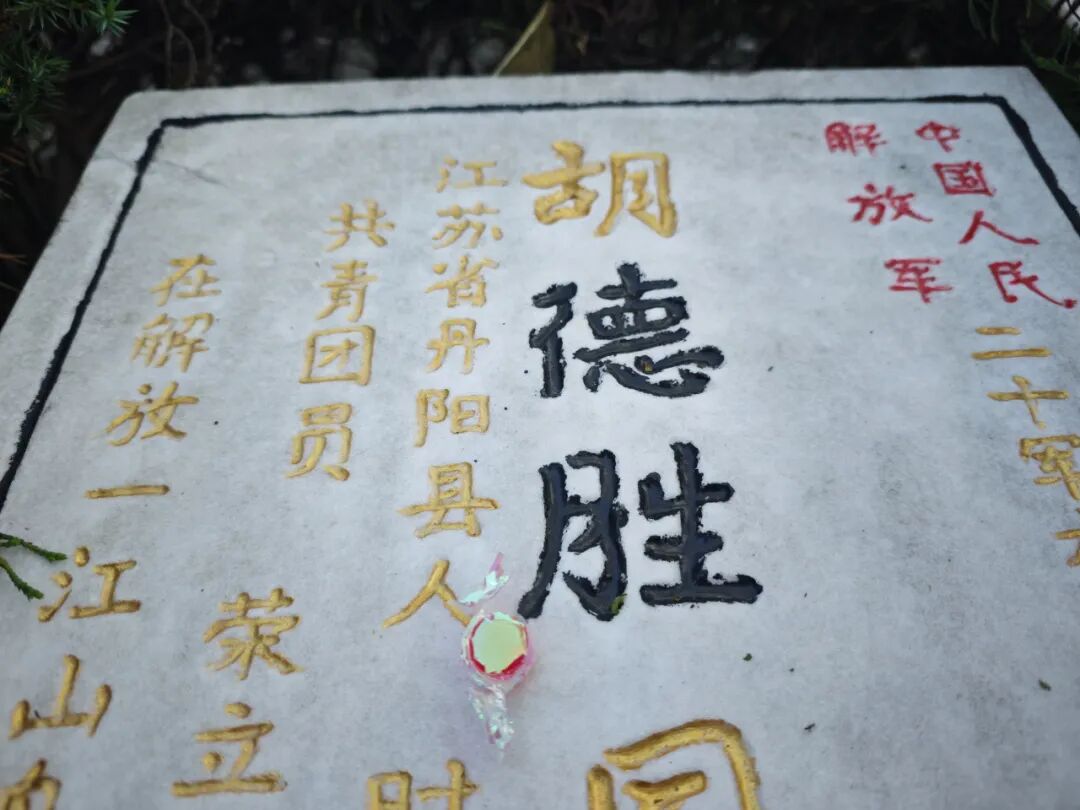 中国人民
解放军
二十军
胡德胜同
江苏省丹阳县人
共青团员 荣立
在解放一江山